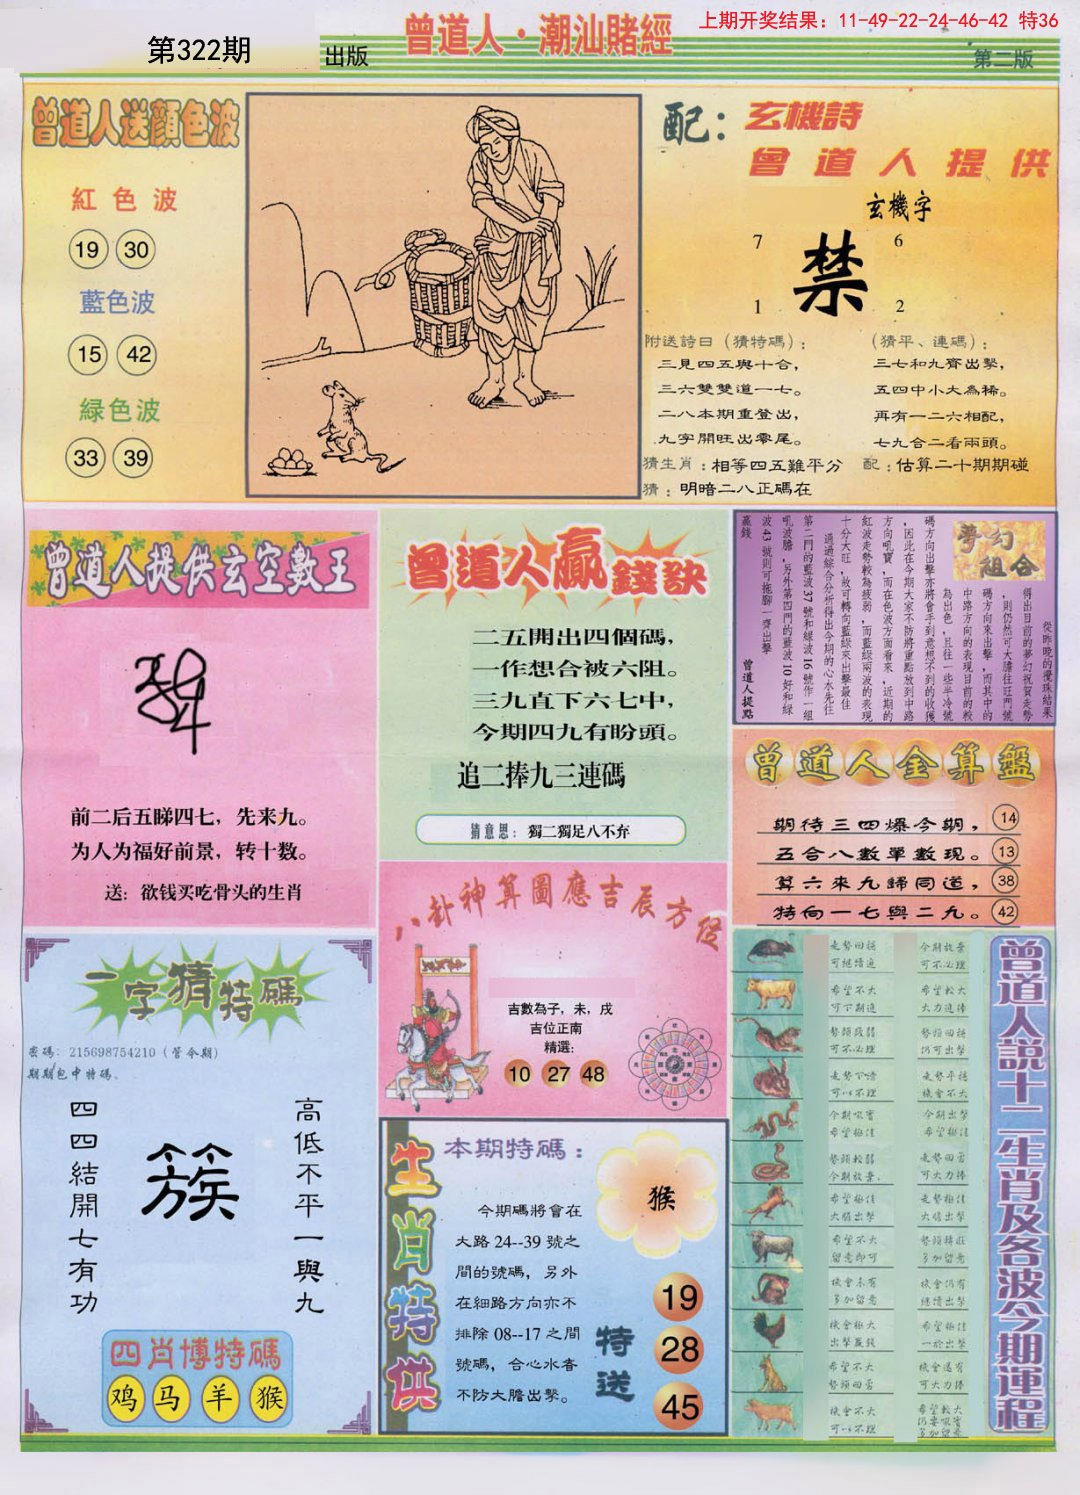 上期开奖结果：11-49-22-24-46-42 特36
第322期
出版
曾道人·潮汕賭經
第二版
曾道人送顏色波
紅色波
19 30
藍色波
15 42
緑色波
33 39
配：玄機詩
曾道人提供
玄機字
7 6
禁
1 2
附送詩曰（猜特碼）：
三見四五與十合，
三六雙雙道一七。
二八本期重登出，
九字開旺出零尾。
（猜平、連碼）：
三七和九齊出擊，
五四中小大為稀。
再有一二六相配，
七九合二看兩頭。
猜生肖：相等四五難平分
配：估算二十期期碰
猜：明暗二八正碼在
曾道人提供玄空數王
前二后五睇四七，先来九。
为人为福好前景，转十数。
送：欲钱买吃骨头的生肖
曾道人贏錢訣
二五開出四個碼，
一作想合被六阻。
三九直下六七中，
今期四九有盼頭。
追二捧九三連碼
猜意思：獨二獨足八不弃
夢幻組合
從昨晚的攪珠結果
得出目前的夢幻祝賀走勢
，則仍然可大膽往旺門號
碼方向來出擊，而其中的
中路方向的表現目前的較
為出色，且往一些半冷號
碼方向出擊亦將會手到意想不到的收獲
，因此在今期大家不防將重點放到中路
方向吼寶，而在色波方面看來，近期的
紅波走勢較為疲弱，而藍綠兩波的表現
十分大旺，故可轉向藍綠來出擊最佳
通過綜合分析得出今期的心水先往
第二門的藍波37號和綠波16號作一組
吼波膽，另外第四門的藍波10好和綠
波43號則可拖腳一齊出擊
贏錢
曾道人提點
曾道人金算盤
期待三四爆今期，14
五合八數單數現。13
算六來九歸同道，38
特向一七與二九。42
八卦神算圖應吉辰方位
吉數為子，未，戌
吉位正南
精選：
10 27 48
一字猜特碼
密碼：215698754210（管令期）
期期包中特碼、
四四結開七有功
簇
高低不平一與九
四肖博特碼
鸡 马 羊 猴
生肖特供
本期特碼：
今期碼將會在
大路24--39號之
間的號碼，另外
在細路方向亦不
排除08--17之間
號碼，合心水者
不防大膽出擊。
猴
特送
19
28
45
曾道人說十二生肖及各波今期運程
走勢回穩
可繼續追
今期放棄
可不必理
希望不大
可下期追
希望較大
大力追捧
勢頭段弱
可不必理
勢頭回穩
仍可出擊
走勢下滑
可以不理
走勢平穩
機會不大
今期吼寶
希望極佳
今期出擊
希望極佳
勢頭較弱
今期放棄，
走勢回勇
可大力捧
希望極佳
大膽出擊
走勢極佳
大膽出擊
希望不大
留意即可
勢頭轉旺
多加留意
機會未有
多加留意
機會仍有
繼續出擊
機會極大
出擊贏錢
希望極佳
一於出擊
希望不大
勢頭回勇
機會還有
可大力捧
機會不大
可以不理
希望較大
仍要吼寶
多加留意